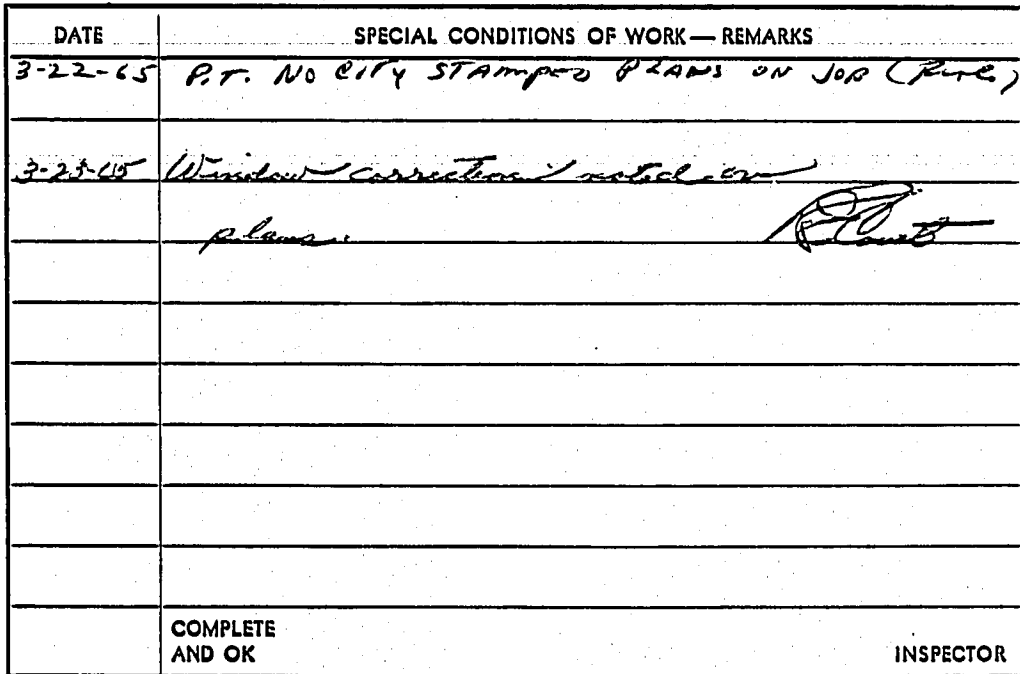 DATE SPECIAL CONDITIONS OF WORK — REMARKS
3-22-65 P.T. NO CITY STAMPED PLANS ON JOB
3-23-65 Window correction noted on
plans.
COMPLETE
AND OK INSPECTOR